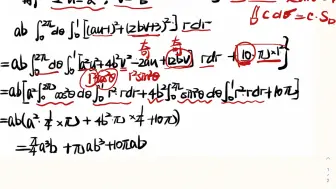 ∬ c dσ = c·S_D
ab∫₀^{2π}dθ∫₀¹[(au-1)²+(2bv+3)²] r dr
=ab∫₀^{2π}dθ∫₀¹[a²u²+4b²v²-2au+12bv] r dr +10 π×1²
r²cos²θ r²sin²θ
=ab[a²∫₀^{2π}cos²θdθ∫₀¹r²·rdr+4b²∫₀^{2π}sin²θdθ∫₀¹r²·rdr+10π]
=ab(a²·¼×π+4b²·π×¼+10π)
=π/4 a³b+πab³+10πab